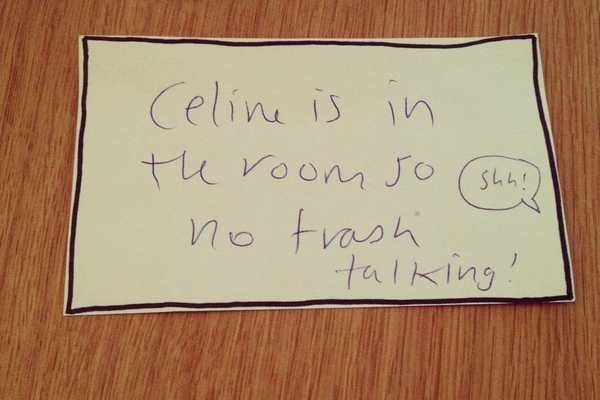 Celine is in
the room so
shh!
no trash
talking!